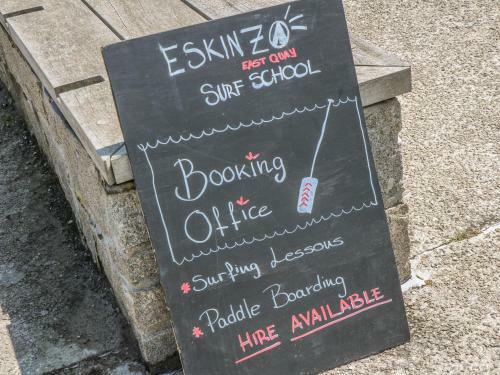 ESKINZO
EAST QUAY
SURF SCHOOL
Booking
Office
* Surfing Lessons
* Paddle Boarding
HIRE AVAILABLE